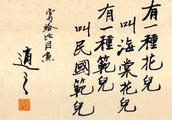 有一種花兒
叫海棠花兒
有一種範兒
叫民國範兒
寫给比目魚